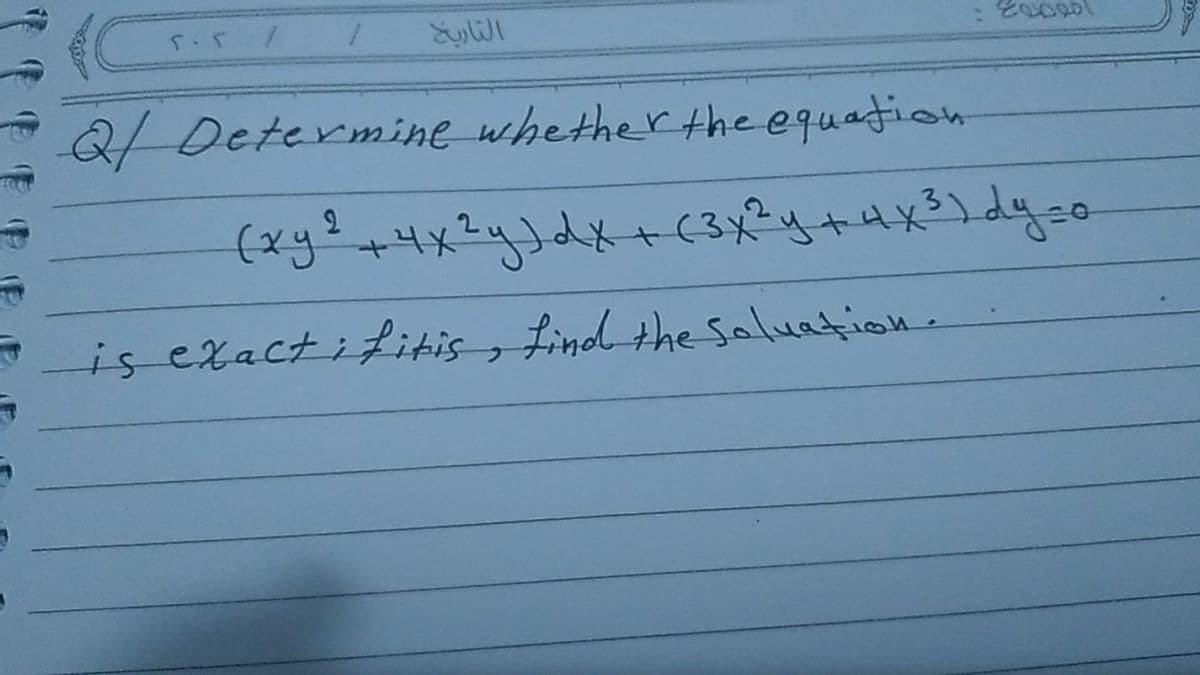 الموضوع :
التاريخ / / ٢٠٢
Q/ Determine whether the equation
(xy² + 4x²y) dx + (3x²y + 4x³) dy = 0
is exact; if it is, find the soluation.